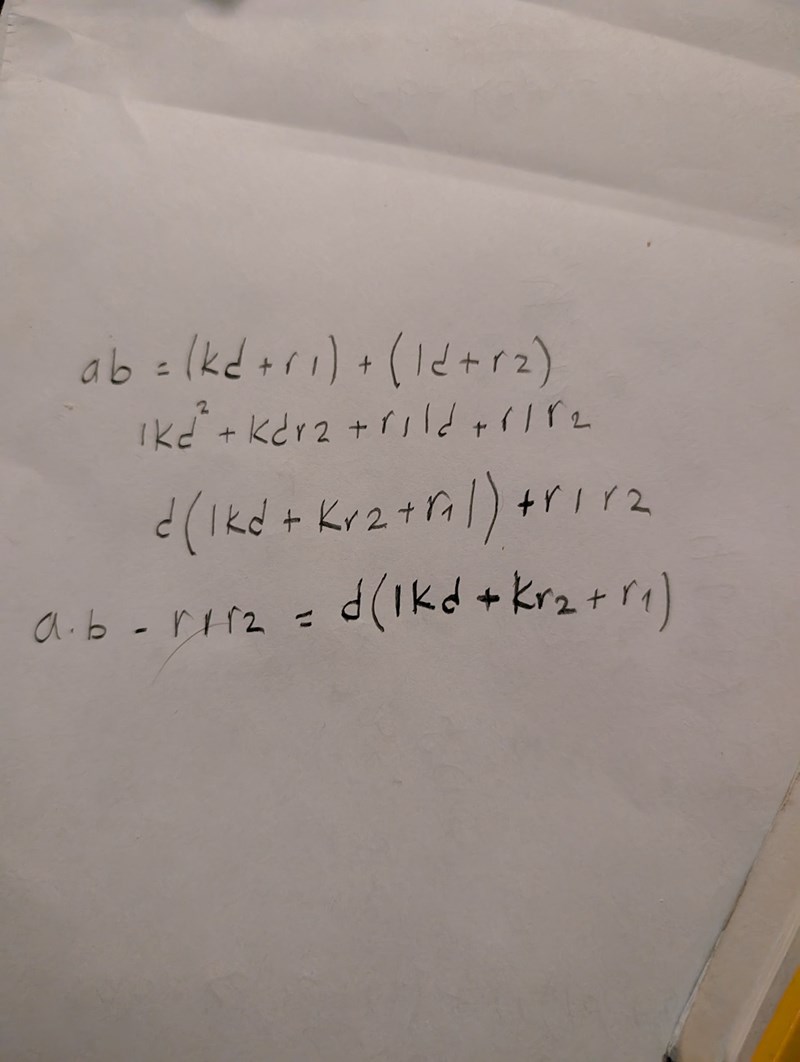 ab = (kd + r1) + (ld + r2)
lkd² + kdr2 + r1ld + r1r2
d(lkd + kr2 + r1l) + r1r2
a·b - r1r2 = d(lkd + kr2 + r1)